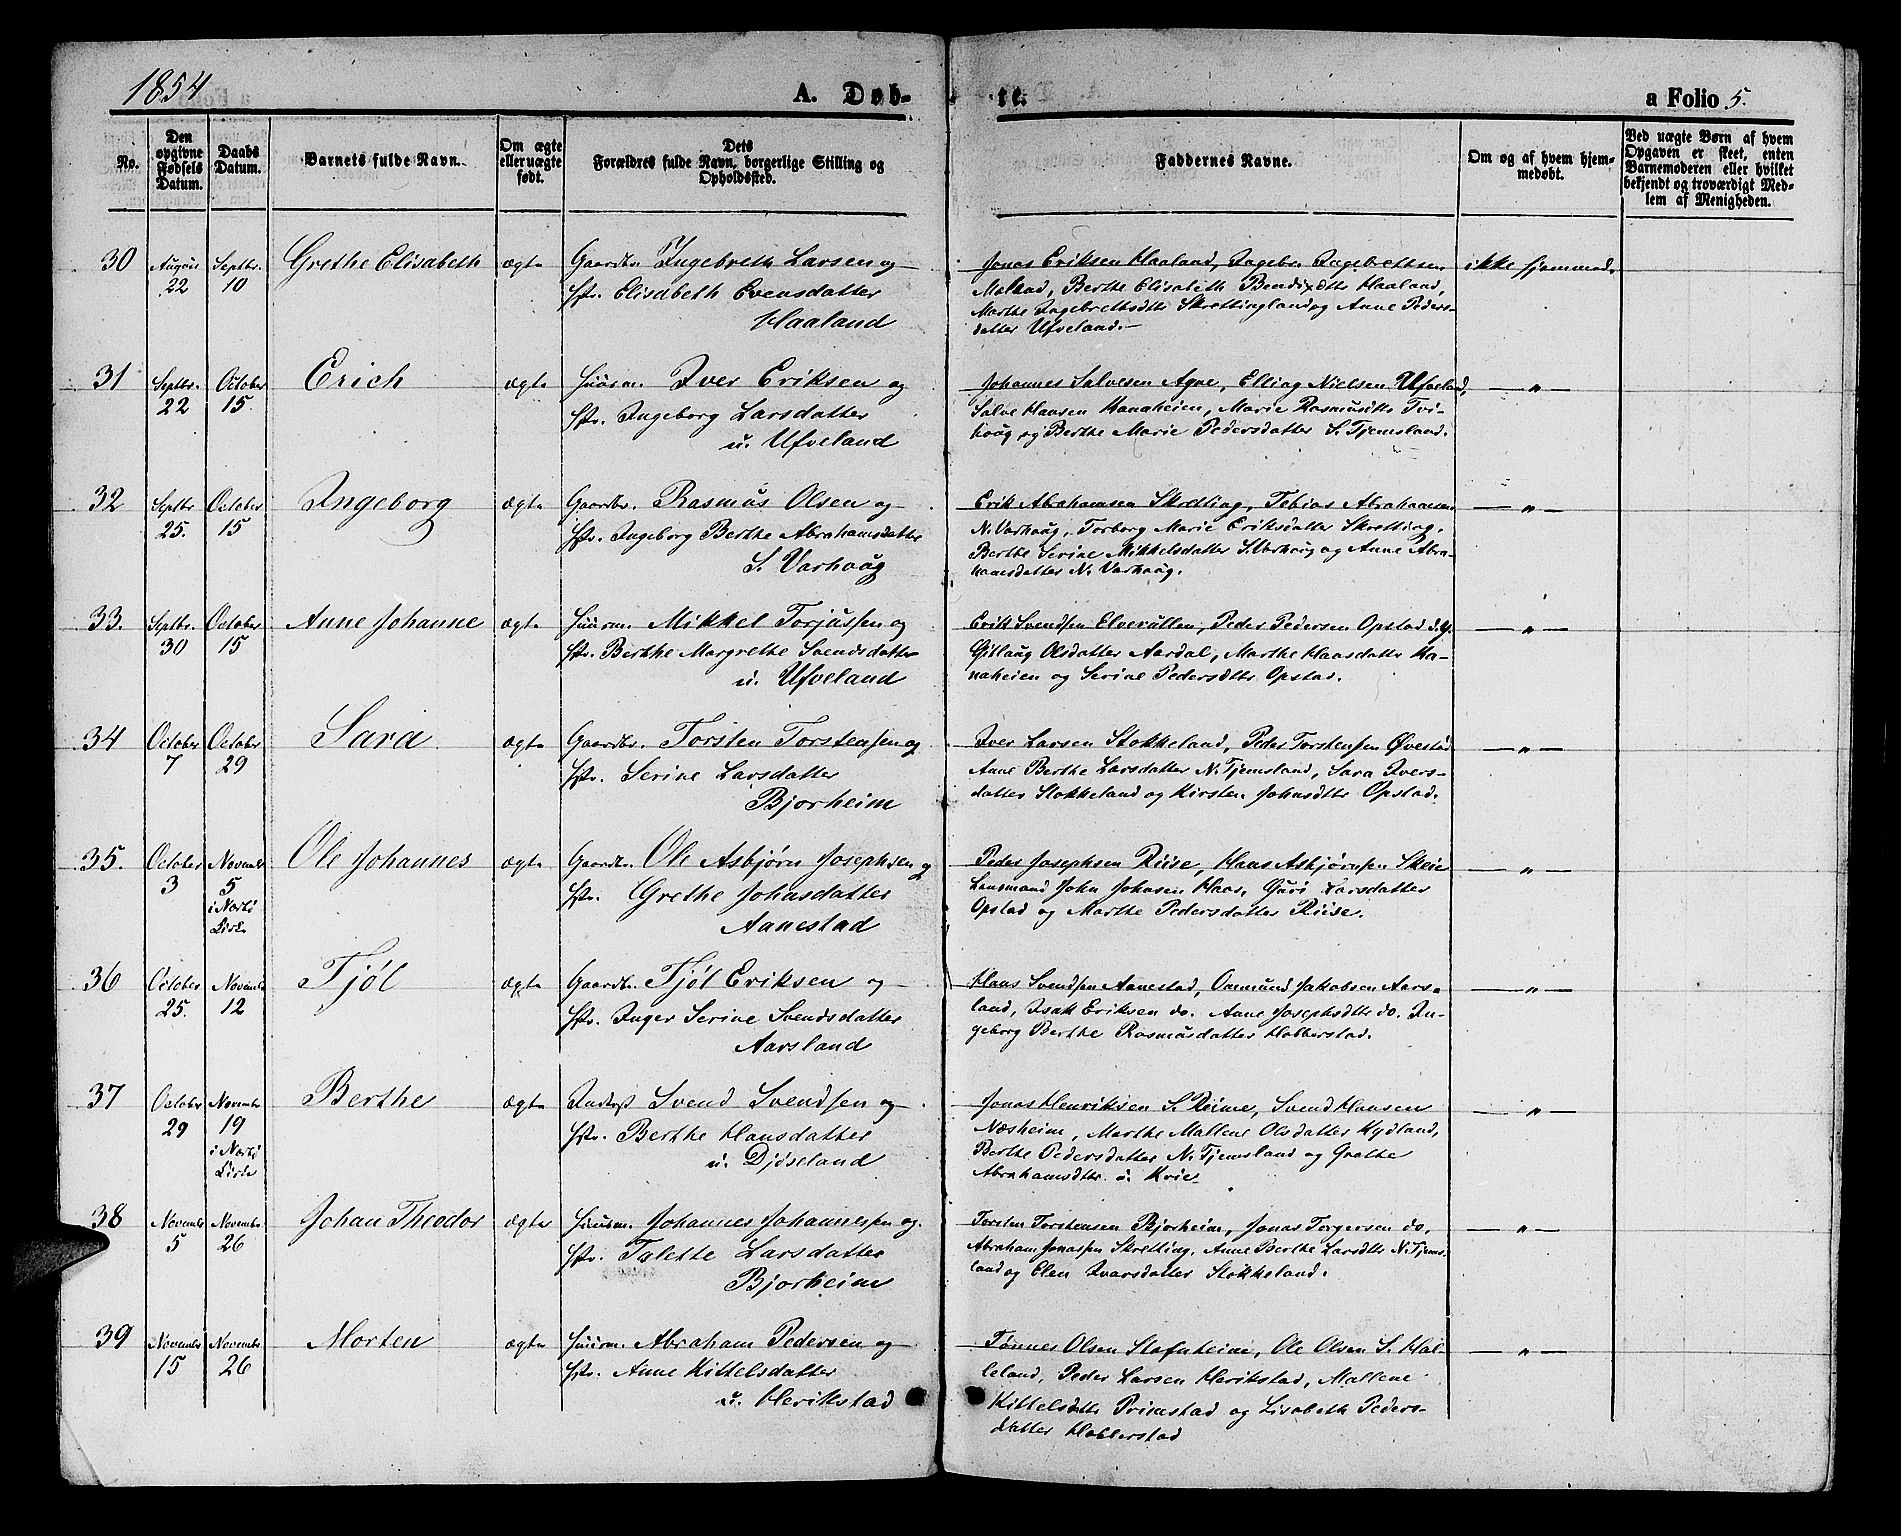 1854
A. Døb-
te.
a Folio 5.
No.
Den opgivne Fødsels Datum.
Daabs Datum.
Barnets fulde Navn.
Om ægte eller uægte født.
Dets Forældres fulde Navn, borgerlige Stilling og Opholdssted.
Faddernes Navne.
Om og af hvem hjem-
medøbt.
Ved uægte Børn af hvem
Opgaven er skeet, enten
Barnemoderen eller hvilket
bekjendt og troværdigt Med-
lem af Menigheden.
30 August 22 Septbr. 10 Grethe Elisabeth ægte Gaardbr. Ingebreth Larsen og
Hstr. Elisabeth Evensdatter
Haaland
Jonas Eriksen Haaland, Ingebr. Ingebrethsen
Berthe Elisabeth Haaland,
Marthe Skrettingland og Anne Peders-
datter Ufveland.
ikke hjemmed.
31 Septbr. 22 October 15 Erich ægte Huusm. Iver Eriksen og
Hstr. Ingeborg Larsdatter
u. Ufveland
Johannes Salvesen Agne, Elling Nielsen Ufveland,
Salve Hansen Hanaheien, Marie Tvi-
haug og Berthe Marie Pedersdatter S. Tjemsland.
— " —
32 Septbr 25. October 15 Ingeborg ægte Gaardbr. Rasmus Olsen og
Hstr. Ingeborg Berthe Abrahamsdatter
S. Varhaug
Erik Abrahamsen Skretting, Tobias Abrahamsen
N. Varhaug, Torborg Marie Eriksdatter Skretting,
Berthe Serine Mikkelsdatter S. Varhaug og Anne Abra-
hamsdatter N. Varhaug.
— " —
33. Septbr. 30 October 15 Anne Johanne ægte Huusm. Mikkel Torjussen og
Hstr. Berthe Margrethe Svendsdatter
u. Ufveland
Erik Svendsen Elverullen, Peder Pedersen Opstad
Olsdatter Aardal, Marthe Hansdatter Ha-
naheien og Serine Opstad.
— " —
34 October 7 October 29 Sara ægte Gaardbr. Torsten Torstensen og
Hstr. Serine Larsdatter
Bjorheim
Iver Larsen Stokkeland, Peder Torstensen Øvestad
Anne Berthe Larsdatter N. Tjemsland, Sara Ivers-
datter Stokkeland og Kirsten Opstad.
— " —
35. October 3 Novembr 5 i Nærbø Kirke Ole Johannes ægte Gaardbr. Ole Asbjørn Josephsen og
Hstr. Grethe Johnsdatter
Aanestad
Peder Josephsen Riise, Hans Skeie
Lensmand John Johnsen Haar, Guri Larsdatter
Opstad og Marthe Pedersdatter Riise.
— " —
36 October 25. Novembr 12 Tjøl ægte Gaardbr. Tjøl Eriksen og
Hstr. Inger Serine Svendsdatter
Aarsland
Hans Svendsen Aanestad, Ommund Jakobsen Aars-
land, Isak Eriksen do. Anne Josephsdttr do. In-
geborg Berthe Rasmusdatter Hobberstad.
— " —
37 October 29 Novembr 19 i Nærbø Kirke Berthe ægte Inderst Svend Svendsen og
Hstr. Berthe Hansdatter
u. Djøseland
Jonas Henriksen S. Reime, Svend Hansen
Næsheim, Marthe Mallene Olsdatter Kydland,
Berthe Pedersdatter N. Tjemsland og Grethe
Abrahamsdttr u. Kvie
— " —
38 Novembr 5 Novembr 26 Johan Theodor ægte Huusm. Johannes Johannessen og
Hstr. Talette Larsdatter
Bjorheim
Torsten Torstensen Bjorheim, Jonas Torgersen do,
Abraham Jonassen Skretting, Anne Berthe Larsdttr N. Tjems-
land og Elen Ivarsdatter Stokkeland.
— " —
39 Novembr 15 Novembr 26 Morten ægte Huusm. Abraham Pedersen og
Hstr. Anne Kittelsdatter
u. Herikstad
Tønnes Olsen Stafnheim, Ole Olsen S. Hal-
leland, Peder Larsen Herikstad, Mallene
Kittelsdttr Primstad og Lisabeth Peders-
datter Hobberstad
— " —